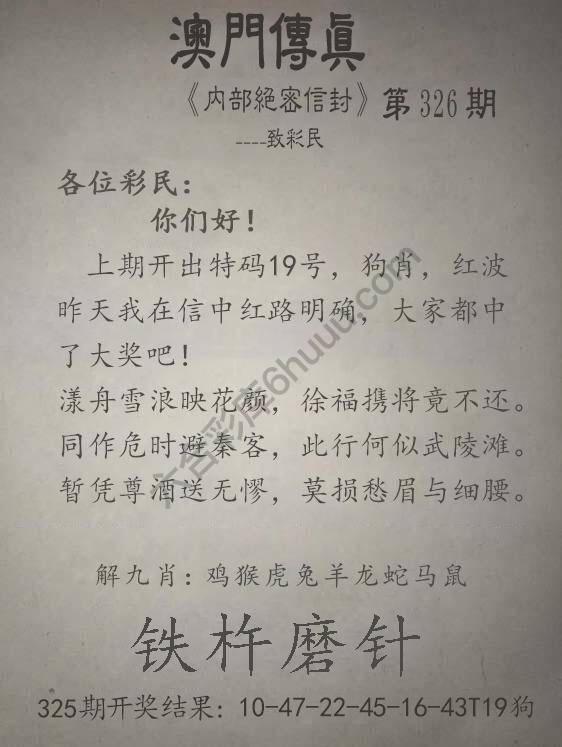 澳門傳眞
《内部絕密信封》第326期
----致彩民
各位彩民：
你们好！
上期开出特码19号，狗肖，红波
昨天我在信中红路明确，大家都中
了大奖吧！
漾舟雪浪映花颜，徐福携将竟不还。
同作危时避秦客，此行何似武陵滩。
暂凭尊酒送无憀，莫损愁眉与细腰。
六合彩库6huuu.com
解九肖：鸡猴虎兔羊龙蛇马鼠
铁杵磨针
325期开奖结果：10-47-22-45-16-43T19狗